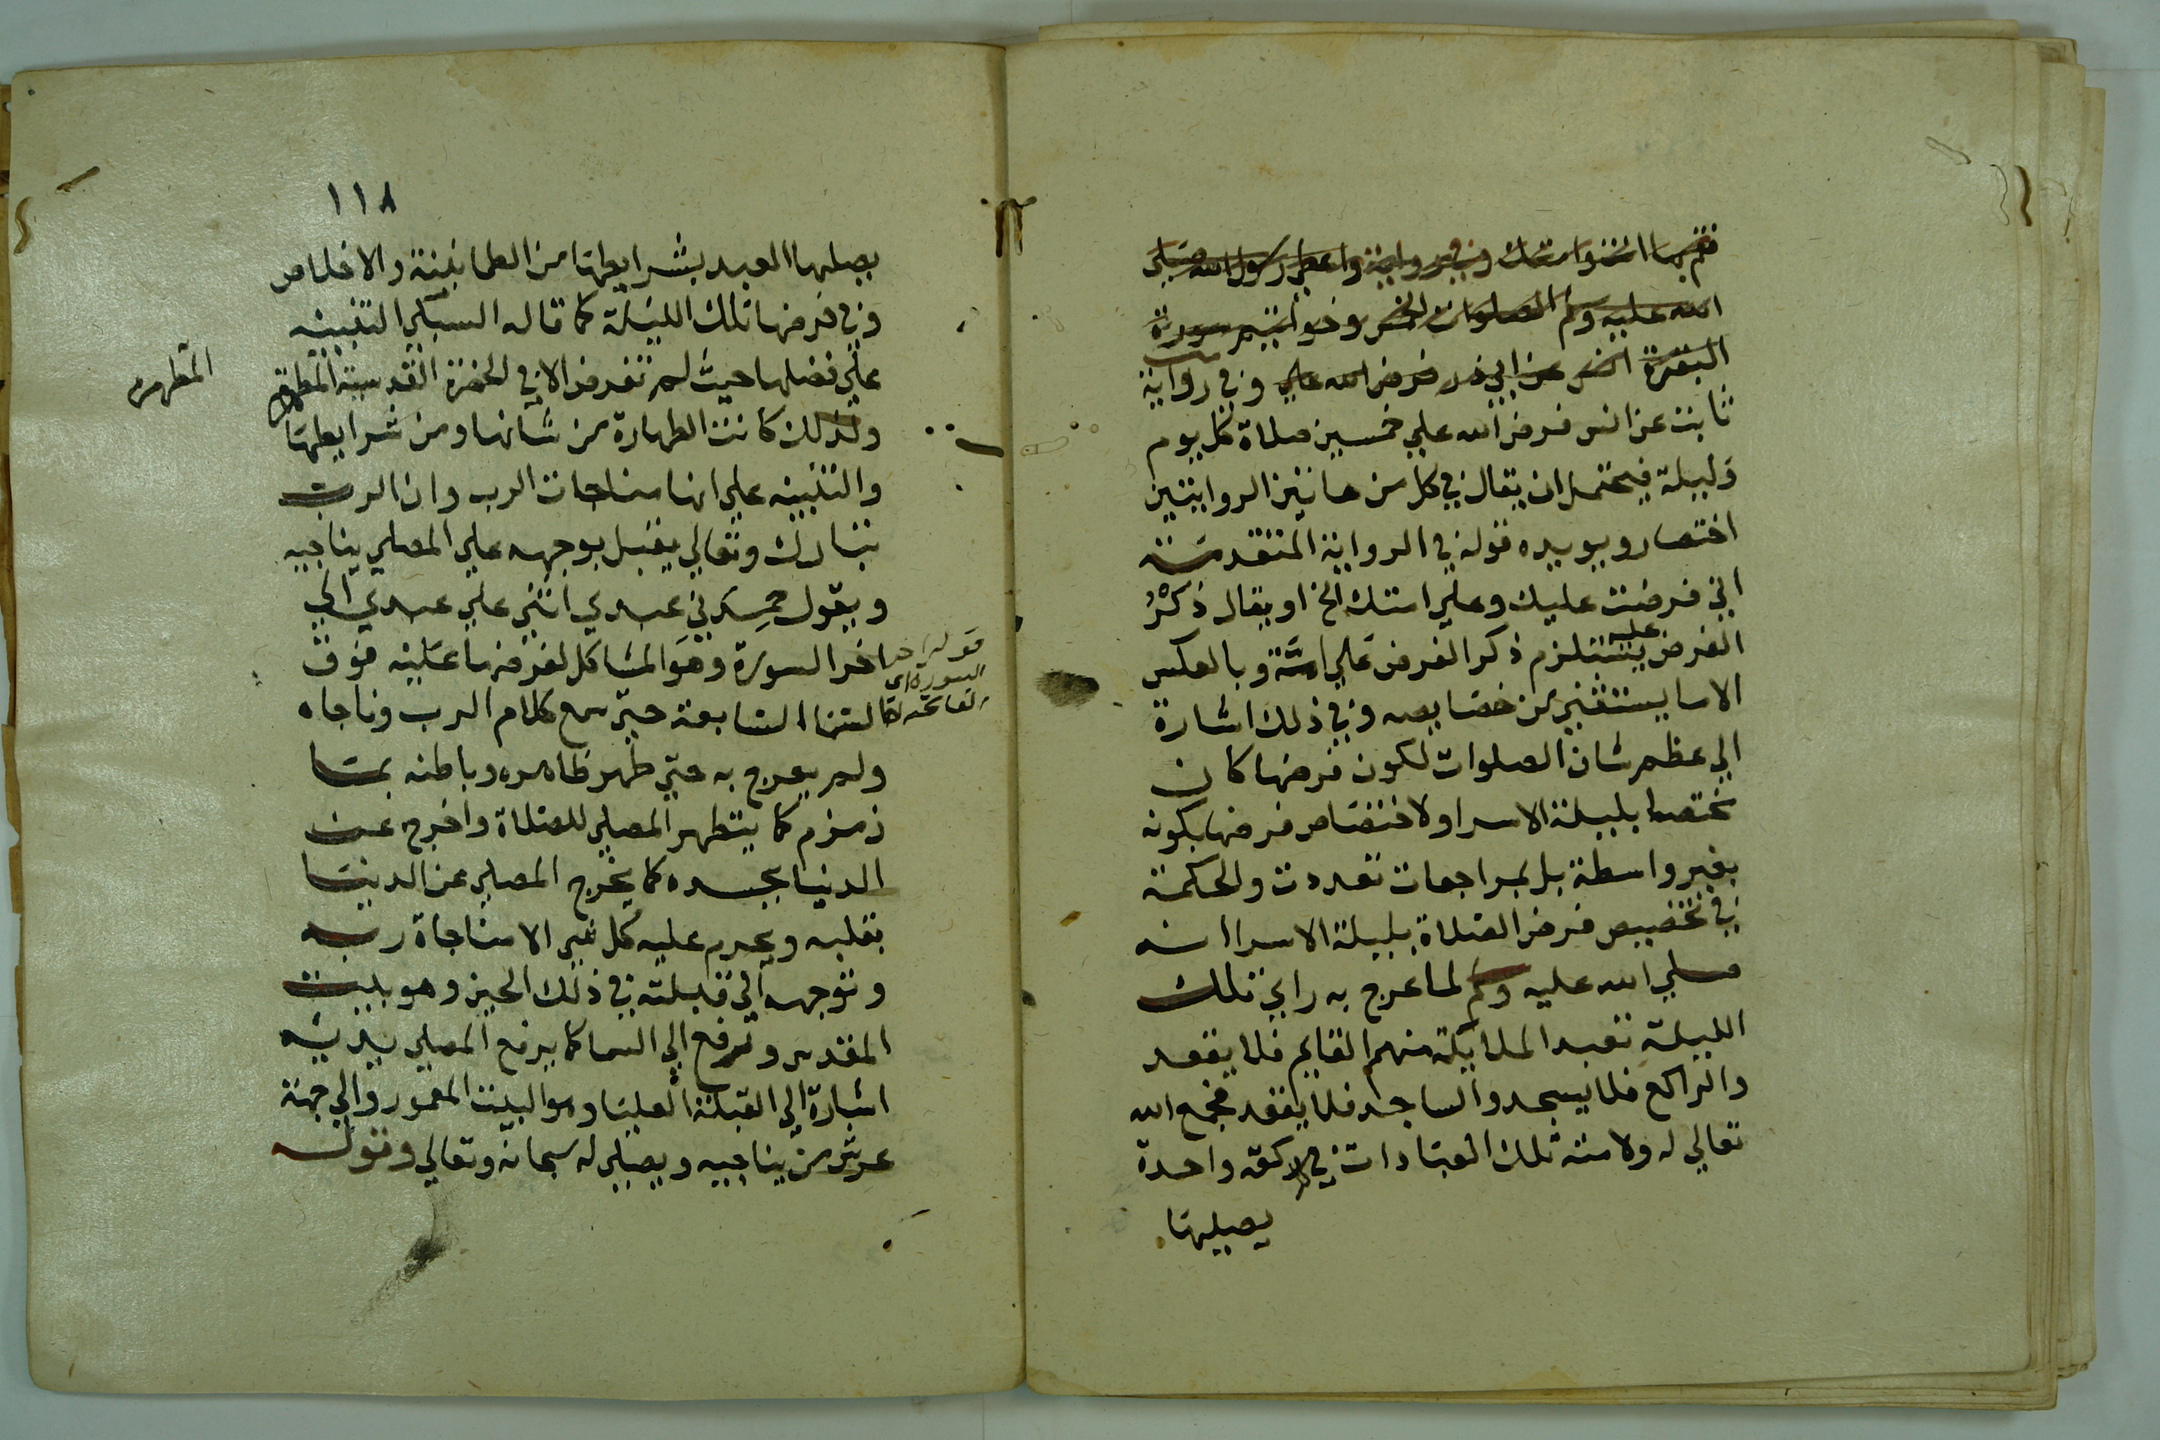 فقم بها انت وامتك وفي رواية واعطي رسول الله صلي
الله عليه وسلم الصلوات الخمس وخواتيم سورة
البقرة عن ابي ذر فرض الله علي وفي رواية
ثابت عن انس فرض الله علي خمسين صلاة كل يوم
وليلة فيحتمل ان يقال في كل من هاتين الروايتين
اختصار ويويده قوله في الرواية المتقدمة
اني فرضت عليك وعلي امتك الخ او يقال ذكر
الفرض عليه يستلزم ذكر الفرض علي امته وبالعكس
الا ما يستثني من خصايصه وفي ذلك اشارة
الي عظم شان الصلوات لكون فرضها كان
مختصا بليلة الاسرا ولاختصاص فرضها بكونه
بغير واسطة بل بمراجعات تعددت والحكمة
في تخصيص فرض الصلاة بليلة الاسرا انه
صلي الله عليه وسلم لما عرج به راي تلك
الليلة تعبد الملايكة منهم القايم فلا يقعد
والراكع فلا يسجد والساجد فلا يقعد فجمع الله
تعالي له ولامته تلك العبادات في ركعة واحدة
يصليها
١١٨
يصليها العبد بشرايطها من الطمانينة والاخلاص
وفي فرضها تلك الليلة كما قاله السبكي التنبيه
علي فضلها حيث لم تفرض الا في الحضرة القدسية المطهرة
المطهرة
ولذلك كانت الطهارة من شانها ومن شرايطها
والتنبيه علي انها مناجات الرب وان الرب
تبارك وتعالي يقبل بوجهه علي المصلي يناجيه
ويقول حمدني عبدي اثني علي عبدي الي
اخر السورة وهو المشاكل لفرضها عليه فوق
قوله اخر
السورة اي
الفاتحة
السما السابعة حتي سمع كلام الرب وناجاه
ولم يعرج به حتي طهر ظاهره وباطنه بما
زمزم كما يتطهر المصلي للصلاة واخرج عن
الدنيا بجسده كما يخرج المصلي عن الدنيا
بقلبه ويحرم عليه كل شي الا مناجاة ربه
وتوجهه الي قبلته في ذلك الحين وهو بيت
المقدس ورفع الي السما كما يرفع المصلي يديه
اشارة الي القبلة العليا وهو البيت المعمور والي جهة
عرش من يناجيه ويصلي له سبحانه وتعالي وتول